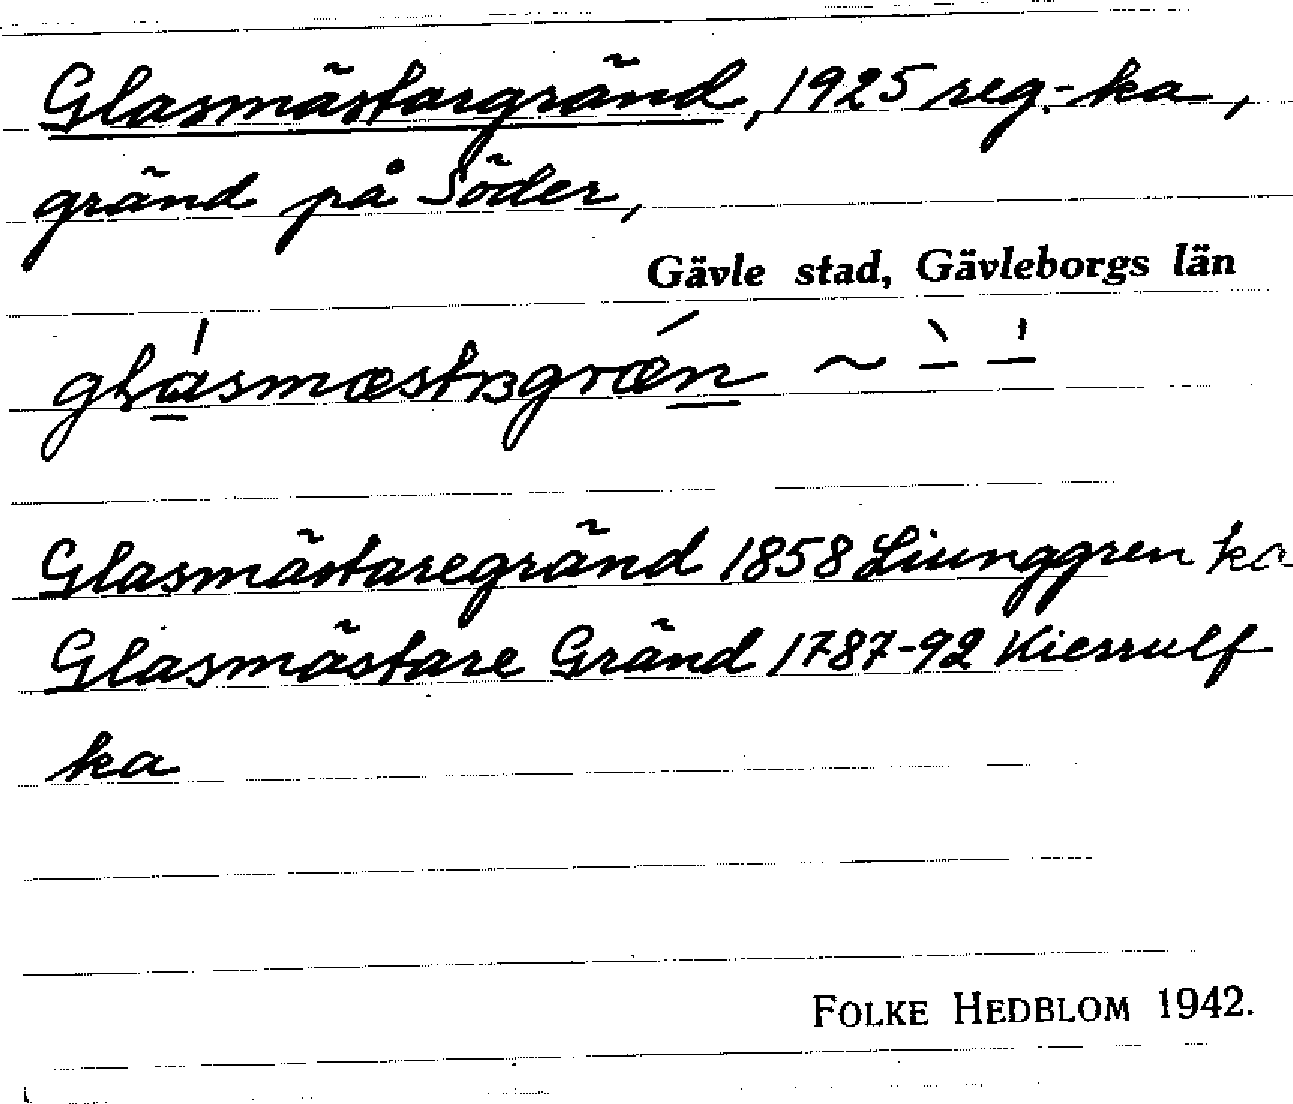 Glasmästargränd, 1925 reg.-ka,
gränd på Söder,
Gävle stad, Gävleborgs län
glásmæstrgræn ~ -̀ -́
Glasmästaregränd 1858 Liunggren ka
Glasmästare Gränd 1787-92 Kierrulf
ka
FOLKE HEDBLOM 1942.